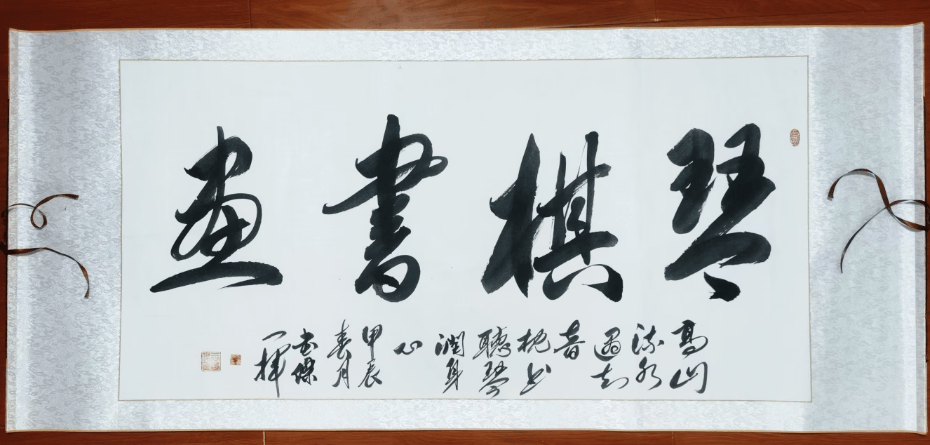 琴棋書畫
高山
流水
遇知
音
枕書
聽琴
潤身
心
甲辰
春月
一揮